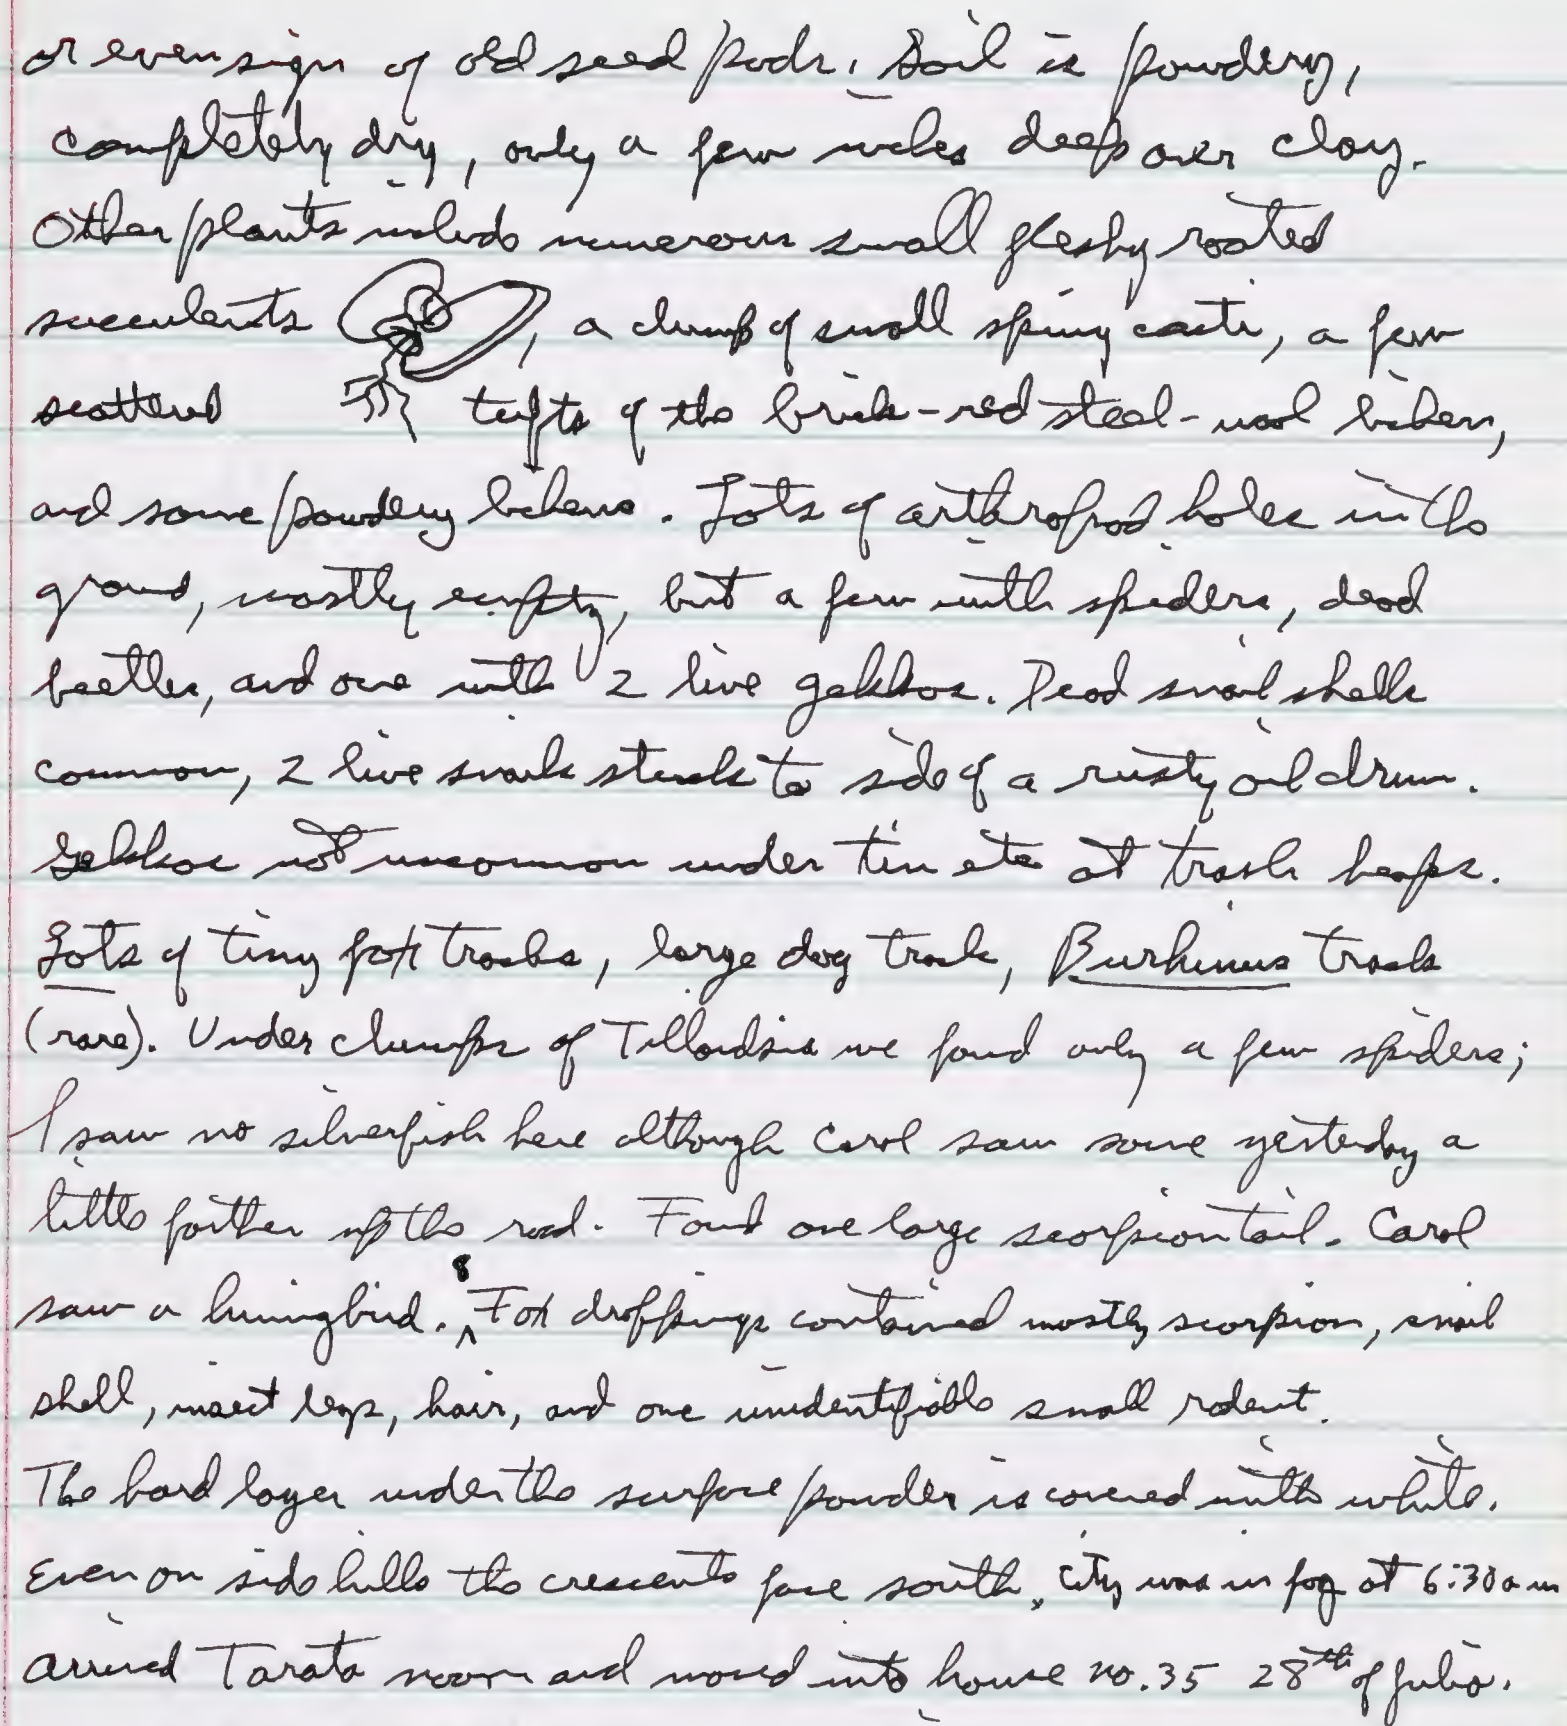 or even sign of old seed pods. Soil is powdery,
completely dry, only a few inches deep over clay.
Other plants include numerous small fleshy rooted
succulents , a clump of small spiny cacti, a few
scattered tufts of the brick-red steel-wool lichen,
and some powdery lichens. Lots of arthropod holes in the
ground, mostly empty, but a few with spiders, dead
beetles, and one with 2 live gekkos. Dead snail shells
common, 2 live snails stuck to side of a rusty oil drum.
Gekkos not uncommon under tin etc at trash heaps.
Lots of tiny fox tracks, large dog track, Burhinus tracks
(rare). Under clumps of Tillandsia we found only a few spiders;
I saw no silverfish here although Carol saw some yesterday a
little farther up the road. Found one large scorpion tail. Carol
saw a humingbird. 8 Fox droppings contained mostly scorpion, snail
shell, insect legs, hair, and one unidentifiable small rodent.
The hard layer under the surface powder is covered with white.
Even on side hills the crescents face south. City was in fog at 6:30 am
Arrived Tarata noon and moved into house no. 35 28th of Julio.